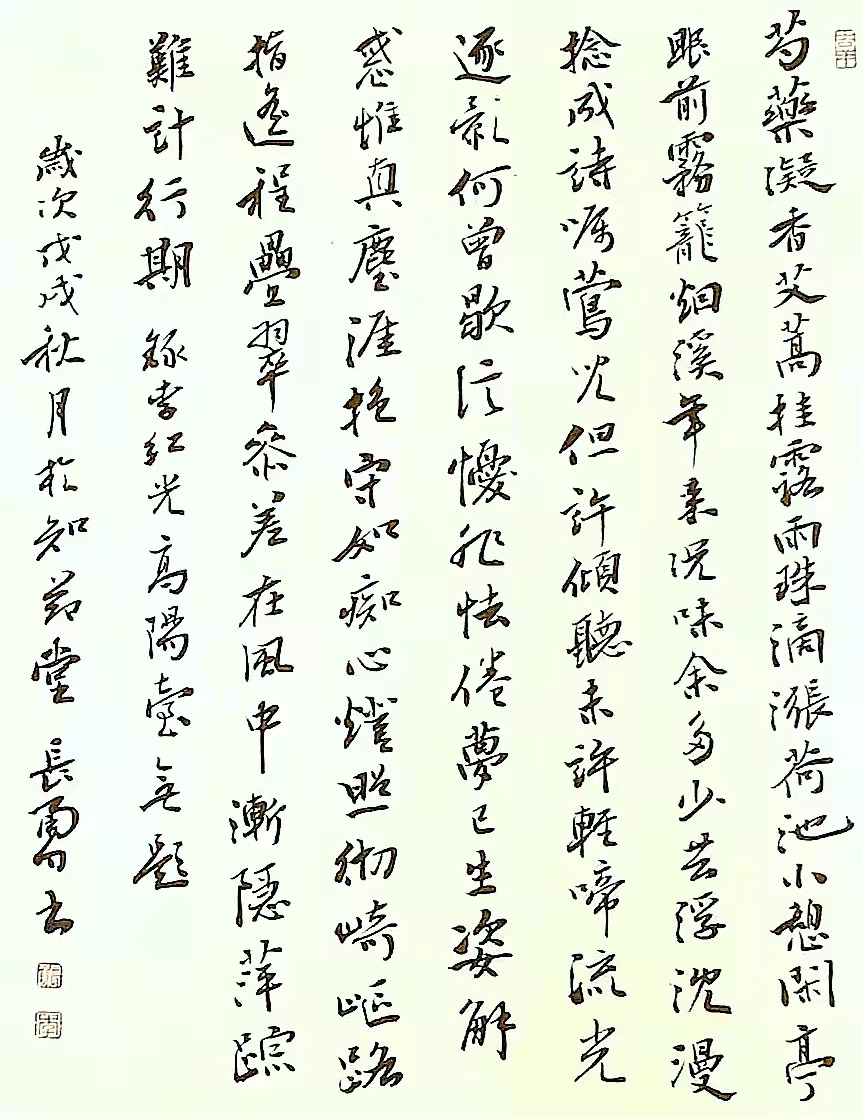 芍藥凝香艾蒿挂露雨珠滴漲荷池小憩閑亭
眼前霧籠烟溪年來況味余多少共浮沈漫
捻成詩嘱莺兒但許傾聽未許輕啼流光
逐影何曾歇信懮非怯倦夢已生姿解
惑惟真塵涯抱守如痴心燈照彻崎岖路
指遙程疊翠參差在風中漸隱萍踪
難計行期 錄李紅光高陽臺無題
歲次戊戌秋月於知茚堂 長勇書